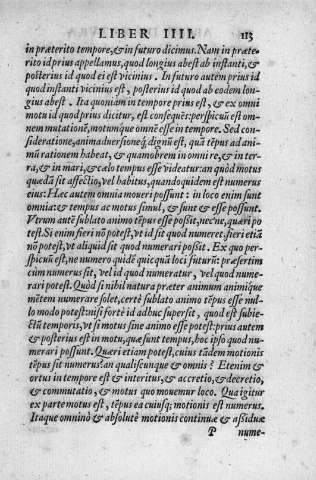 LIBER IIII. 113
in præterito tempore, & in futuro dicimus. Nam in præte-
rito id prius appellamus, quod longius abest ab instanti, &
posterius id quod ei est vicinius. In futuro autem prius id
quod instanti vicinius est, posterius id quod ab eodem lon-
gius abest. Ita quoniam in tempore prius est, & ex omni
motu id quod prius dicitur, est consequēs: perspicuū est om-
nem mutationē, motumq́ue omnē esse in tempore. Sed con-
sideratione, animaduersioneq́; dignū est, quā tēpus ad ani-
mū rationem habeat, & quamobrem in omni re, & in ter-
ra, & in mari, & cælo tempus esse videatur: an quòd motus
quædā sit affectio, vel habitus, quandoquidem est numerus
eius: Hæc autem omnia moueri possunt: in loco enim sunt
omnia: & tempus ac motus simul, & sunt & esse possunt.
Vtrum autē sublato animo tēpus esse possit, nec'ne, quæri po
test. Si enim fieri nō potest, vt id sit quod numeret, fieri etiā
nō potest, vt aliquid sit quod numerari possit. Ex quo per-
spicuū est, ne numero quidē quicquā loci futurū: præsertim
cùm numerus sit, vel id quod numeratur, vel quod nume-
rari potest. Quòd si nihil natura præter animum animique
mētem numerare solet, certè sublato animo tēpus esse nul-
lo modo potest: nisi fortè id adhuc supersit, quod est subie-
ctū temporis, vt si motus sine animo esse potest: prius autem
& posterius est in motu, quæ sunt tempus, hoc ipso quod nu-
merari possunt. Quæri etiam potest, cuius tādem motionis
tēpus sit numerus: an qualiscunque & omnis? Etenim &
ortus in tempore est & interitus, & accretio, & decretio,
& commutatio, & motus quo mouemur loco. Qua igitur
ex parte motus est, tēpus ea cuiusq́; motionis est numerus.
Itaque omninò & absolutè motionis continuæ & assiduæ
P nume-